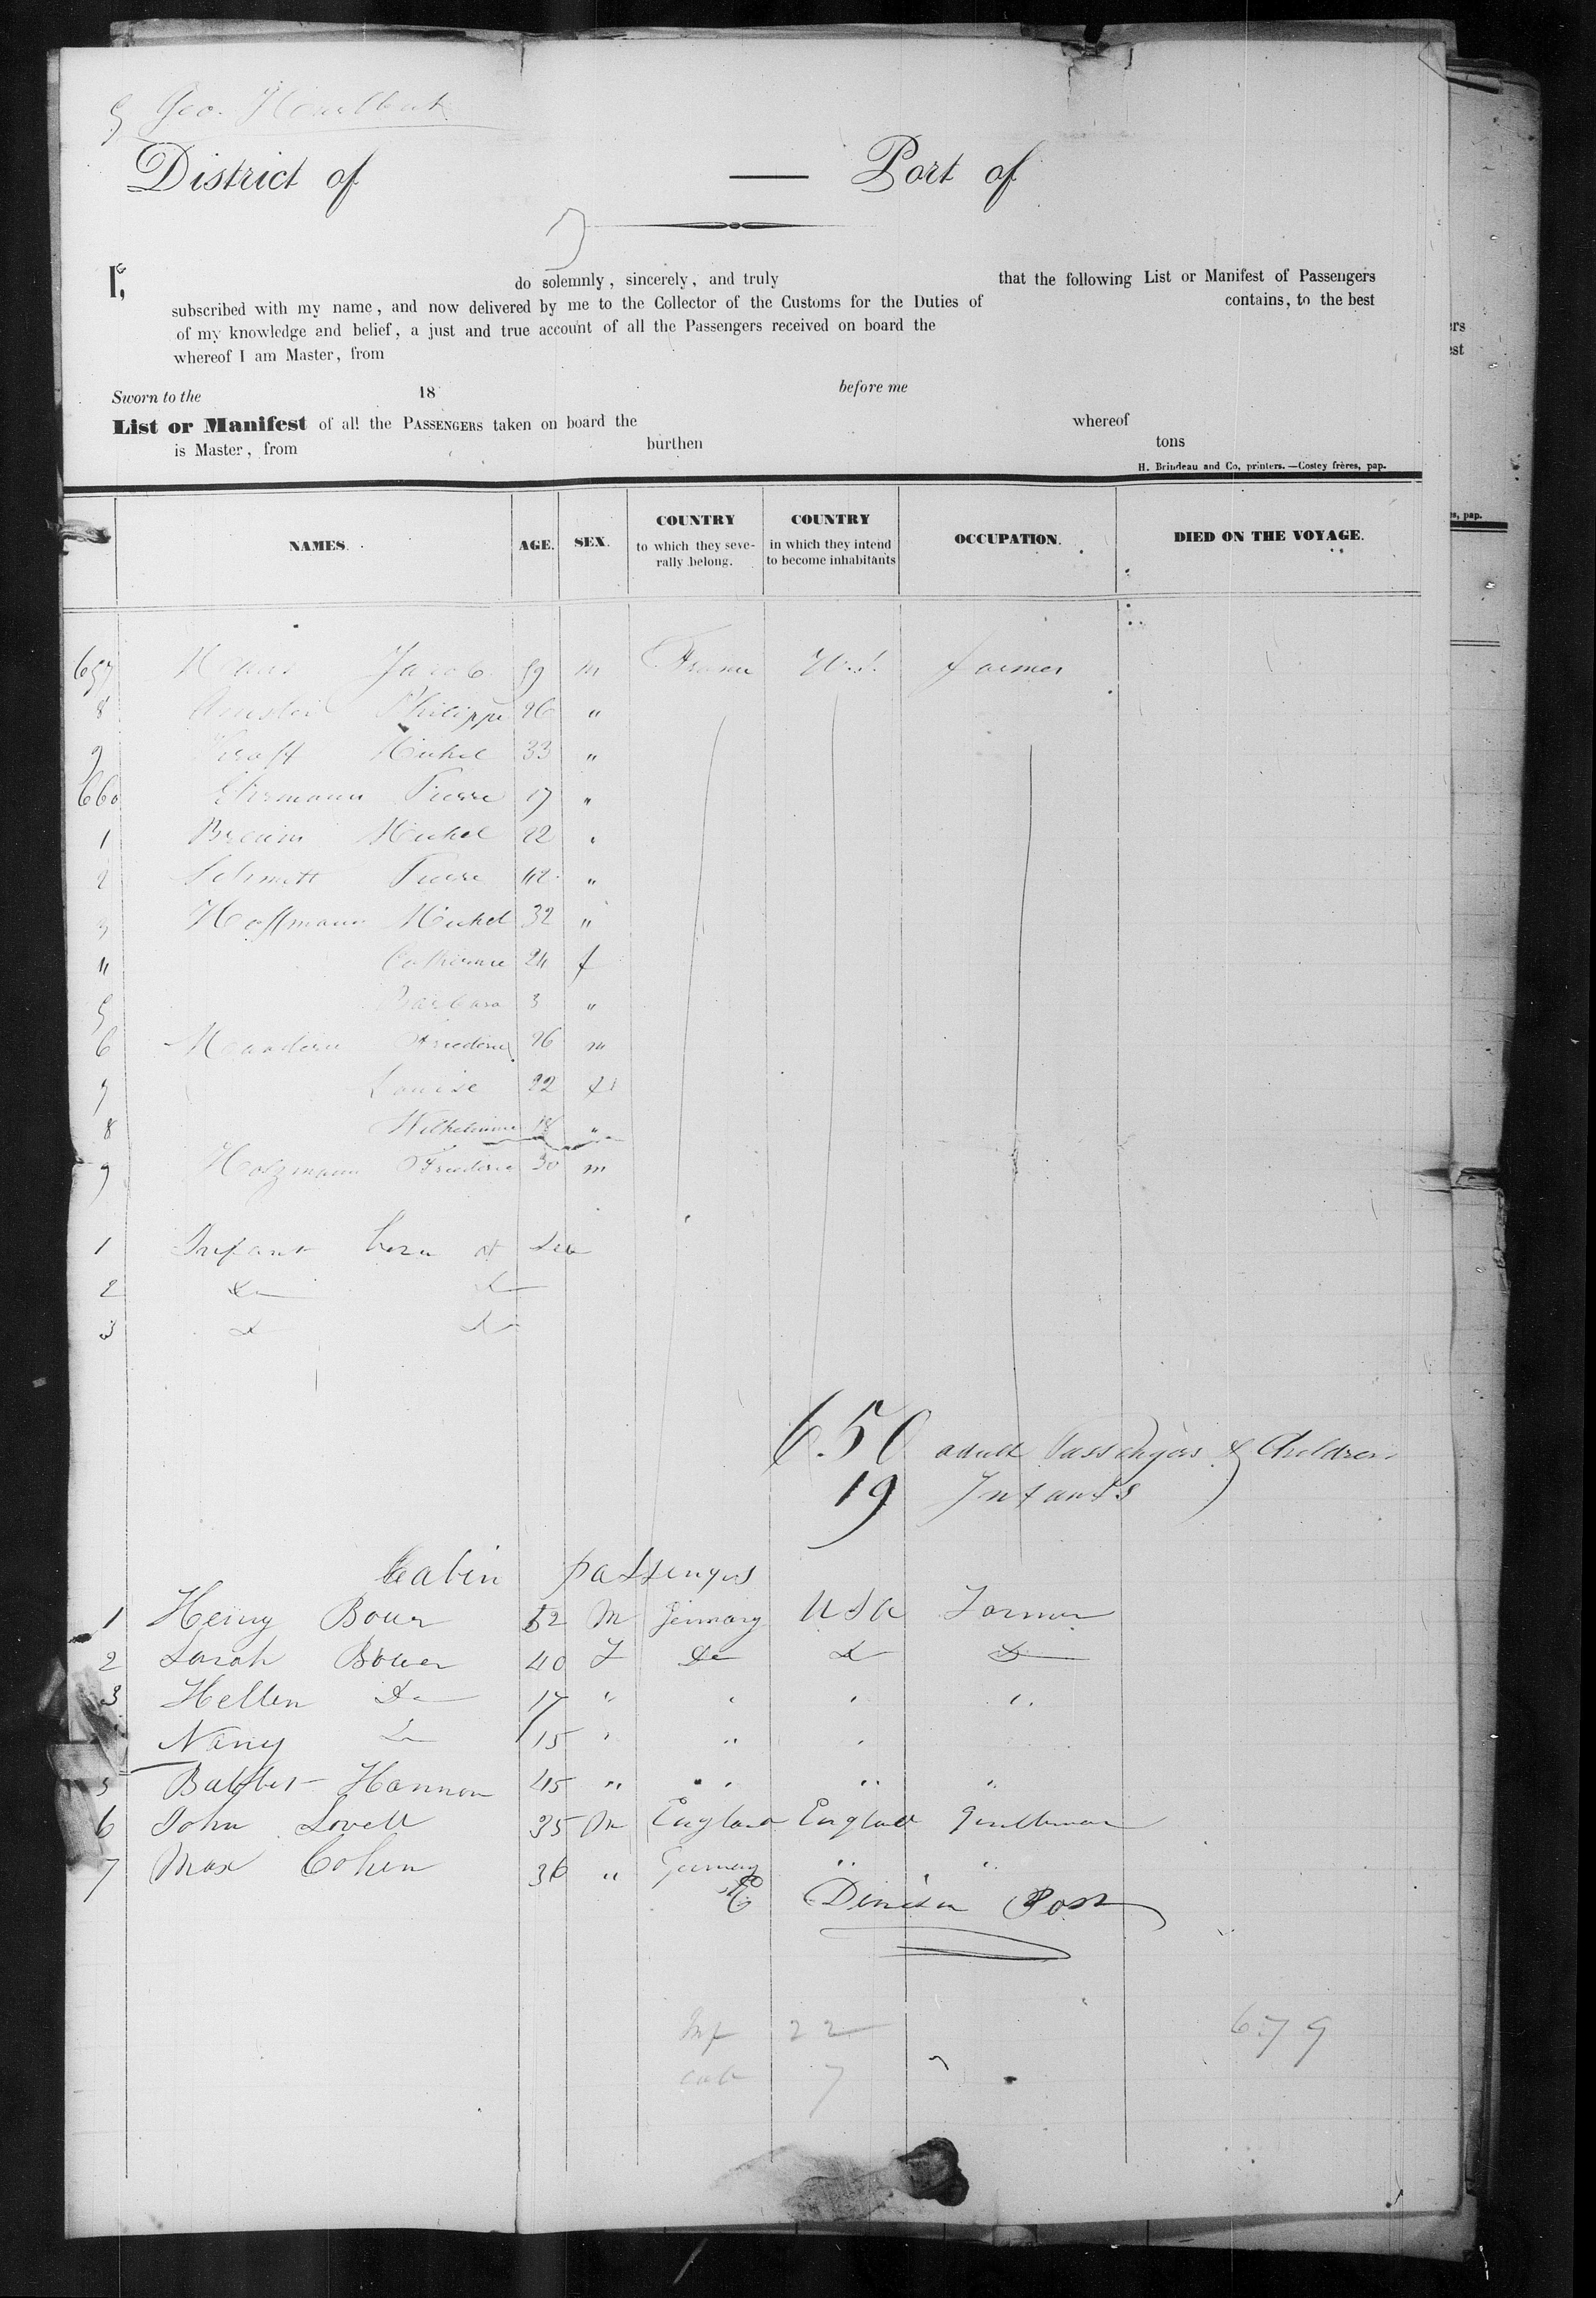 5 Geo. Hurlbut
District of — Port of
I, do solemnly, sincerely, and truly that the following List or Manifest of Passengers
subscribed with my name, and now delivered by me to the Collector of the Customs for the Duties of contains, to the best
of my knowledge and belief, a just and true account of all the Passengers received on board the
whereof I am Master, from
Sworn to the 18 before me
List or Manifest of all the PASSENGERS taken on board the whereof
is Master, from burthen tons
H. Brindeau and Co, printers.—Costey frères, pap.
NAMES. AGE. SEX. COUNTRY to which they severally belong. COUNTRY in which they intend to become inhabitants OCCUPATION. DIED ON THE VOYAGE.
657 Jacob 59 m France U.S. farmer
8 Philippe 26 "
9 Kraff Michel 33 "
660 Ehrmann Pierre 17 "
1 Michel 22 "
2 Schmitt Pierre 42 "
3 Hoffmann Michel 32 "
4 Catherine 24 f
5 Barbara 3 "
6 26 m
7 Louise 22 f
8 Wilhelmine 18 "
9 Holzmann 30 m
1 Infant born at Sea
2 Do Do
3 Do Do
650 adult Passengers & Children
19 Infants
Cabin passengers
1 Henry Bouer 52 M Germany USA Farmer
2 Sarah Bouer 40 F Do Do Do
3 Hellen Do 17 " " " "
Nancy Do 15 " " "
5 Hannon 45 " " " "
6 John Lovell 35 M England England Gentleman
7 Max Cohen 36 " Germany " "
Denison Post
Inf 22 679
cab 7